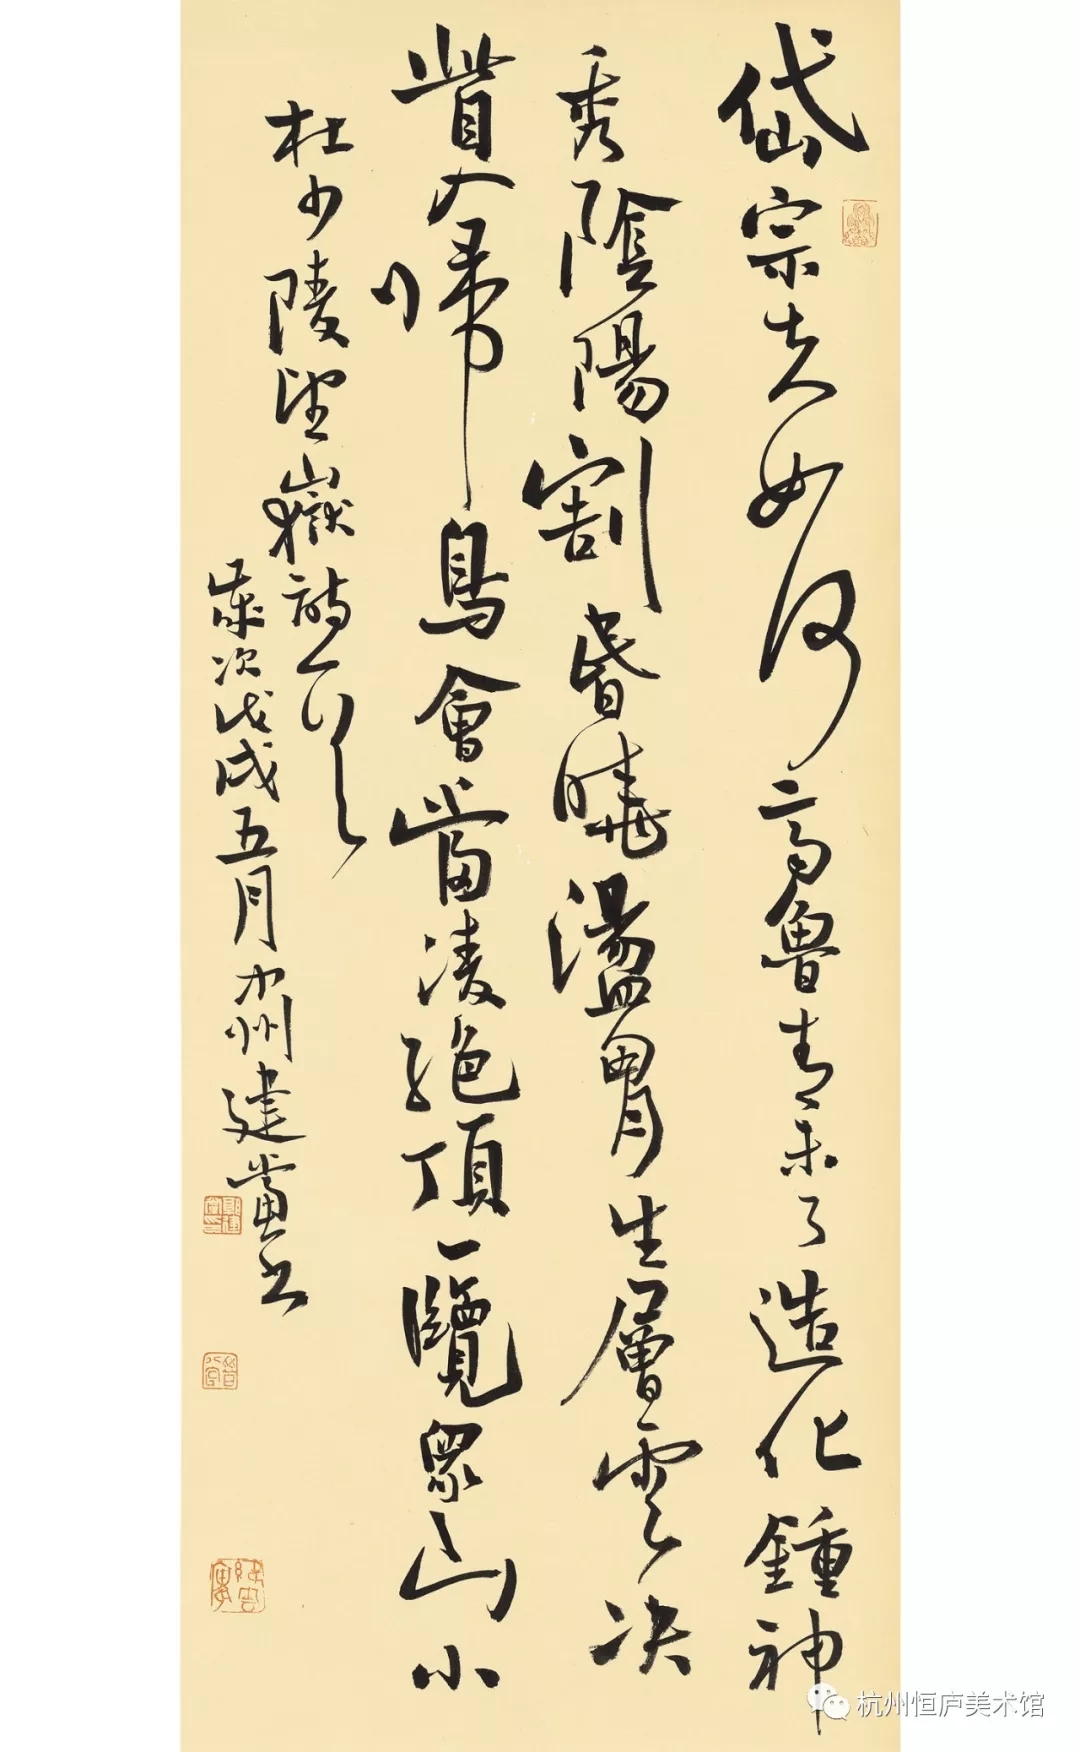 岱宗夫如何齊魯青未了造化鍾神
秀陰陽割昬曉盪胷生層雲决
眥入歸鳥會當凌絕頂一覽眾山小
杜少陵望嶽詩一首
歲次戊戌五月中州建黨书
杭州恒庐美术馆